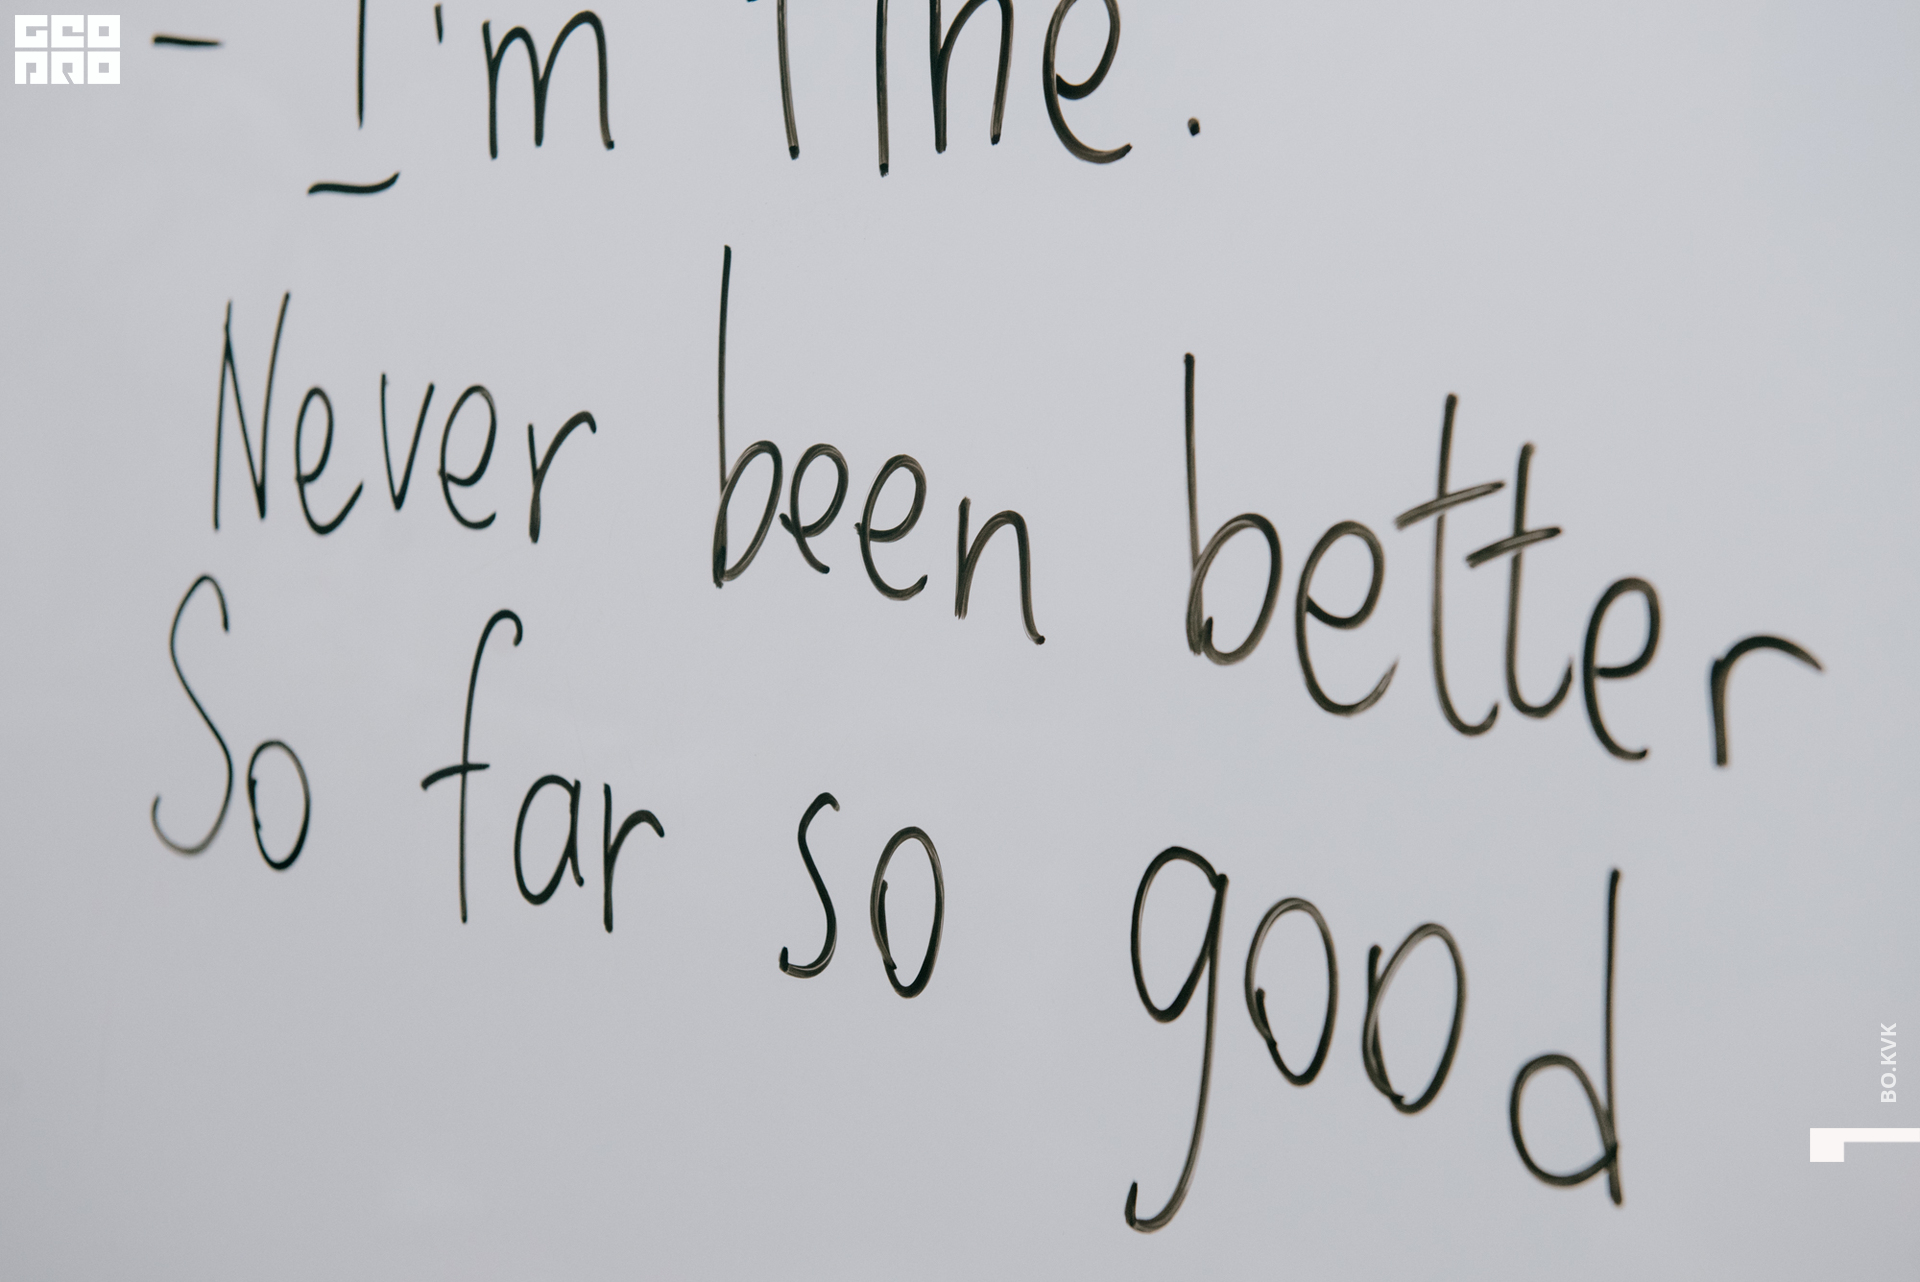 GEO
PRO
- I'm fine.
Never been better
So far so good
BO.KVK